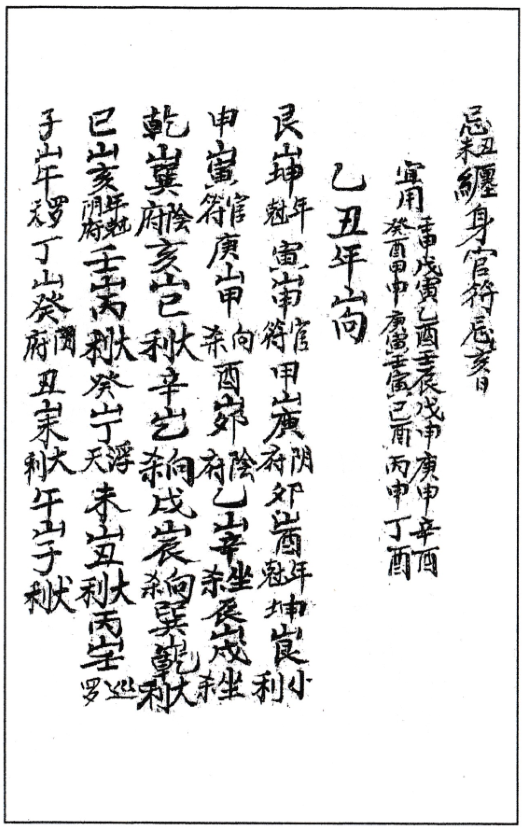 忌丑未纏身官符忌亥日
宜用壬申戊寅乙酉壬辰戊申庚申辛酉
癸酉甲申庚寅壬寅己酉丙申丁酉
乙丑年山向
艮山坤年尅寅山申官符甲山庚阴府卯山酉年尅坤山艮小利
申山寅官符庚山甲向杀酉山卯陰府乙山辛坐杀辰山戌坐杀
乾山巽陰府亥山巳大利辛山乙向杀戌山辰向杀巽山乾大利
巳山亥年尅阴府壬山丙大利癸山丁浮天未山丑大利丙山壬巡罗
子山午罗天丁山癸阴府丑山未大利午山子大利